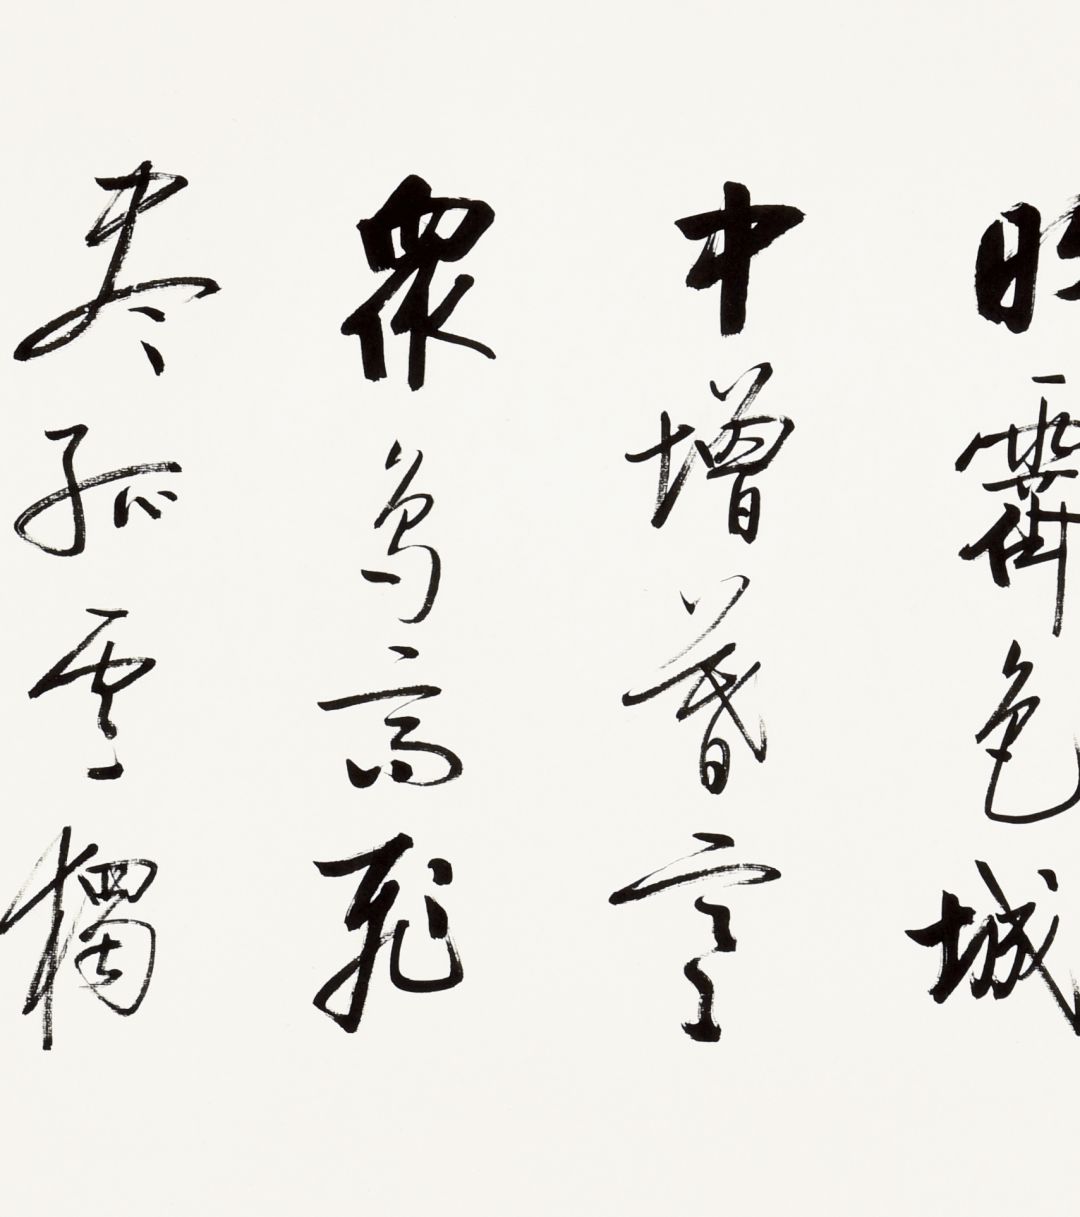 明霽色城
中增暮寒
眾鳥高飛
盡孤雲獨